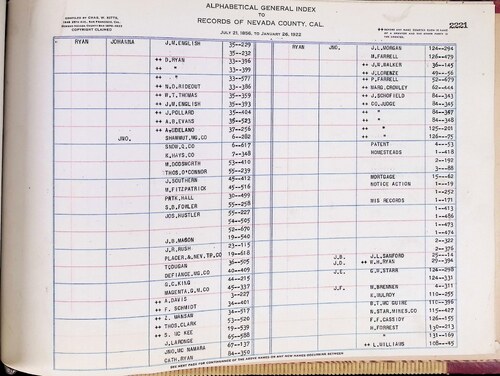 ALPHABETICAL GENERAL INDEX
TO
RECORDS OF NEVADA COUNTY, CAL.
JULY 21, 1856, TO JANUARY 26, 1922
COPYRIGHT CLAIMED
2221
RYAN JOHANNA J.M.ENGLISH 35--229
35--232
++ D.RYAN 33--396
++ " 33--399
++ " 33--577
++ N.D.RIDEOUT 33--386
++ W.T.THOMAS 35--359
++ J.M.ENGLISH 35--393
++ J.POLLARD 35--404
++ A.B.EVANS 35--523
++ A.ODELANO 37--256
JNO. SHAWMUT,MG.CO 6--282
SNOW,G.CO 6--617
W.HAYS,CO 7--348
M.DODSWORTH 53--410
THOS.O'CONNOR 55--239
J.SOUTHERN 45--412
M.FITZPATRICK 45--516
PNTK.HALL 30--499
S.D.FOWLER 55--258
JOS.HUSTLER 55--227
54--505
52--670
J.B.MASON 19--540
J.R.RUSH 23--115
PLACER.& NEV.TP.CO 19--618
TCOUGAN 36--505
DEFIANCE,MG.CO 40--409
G.C.KING 44--215
MAGENTA,G.M.CO 45--337
++ A.DAVIS 3--227
++ F. SCHMIDT 34--401
++ Z. MANSAN 34--517
++ THOS.CLARK 53--520
++ S. UC KEE 19--539
J.LARONGE 65--588
JNO.UC NAMARA 67--137
CATH.RYAN 84--350
RYAN JNO. J.L.MORGAN 124--294
M.FARRELL 126--479
++ J.W.BALKER 36--145
++ J.LORENZE 49--56
++ P.FARRELL 52--679
++ MARG.CROWLEY 62--644
++ J.SCHOFIELD 84--343
++ CO.JUDGE 84--345
++ " 84--347
++ " 84--348
++ " 125--201
++ " 126--75
PATENT 4---53
HOMESTEADS 1--418
2--192
3---88
MORTGAGE 15---62
NOTICE ACTION 1---19
1--252
MIS RECORDS 1--171
1--413
1--486
1--473
1--474
2--322
2--376
J.B. J.L.SANFORD 25---14
J.D. ++ W.H.RYAN 29--394
J.E. G.W.STARR 124--298
124--331
J.F. W.BRENNER 4--311
K.MULROY 110--255
B.T.MC GUIRE 110--396
N.STAR.MINES.CO 115--427
F.F.CASSIDY 126--155
H.FORREST 130--213
" 131--169
++ L.WILLIAMS 108--45
SEE NEXT PAGE FOR CONTINUANCE OF THE ABOVE NAMES OR ANY NEW NAMES BEGINNING BETWEEN